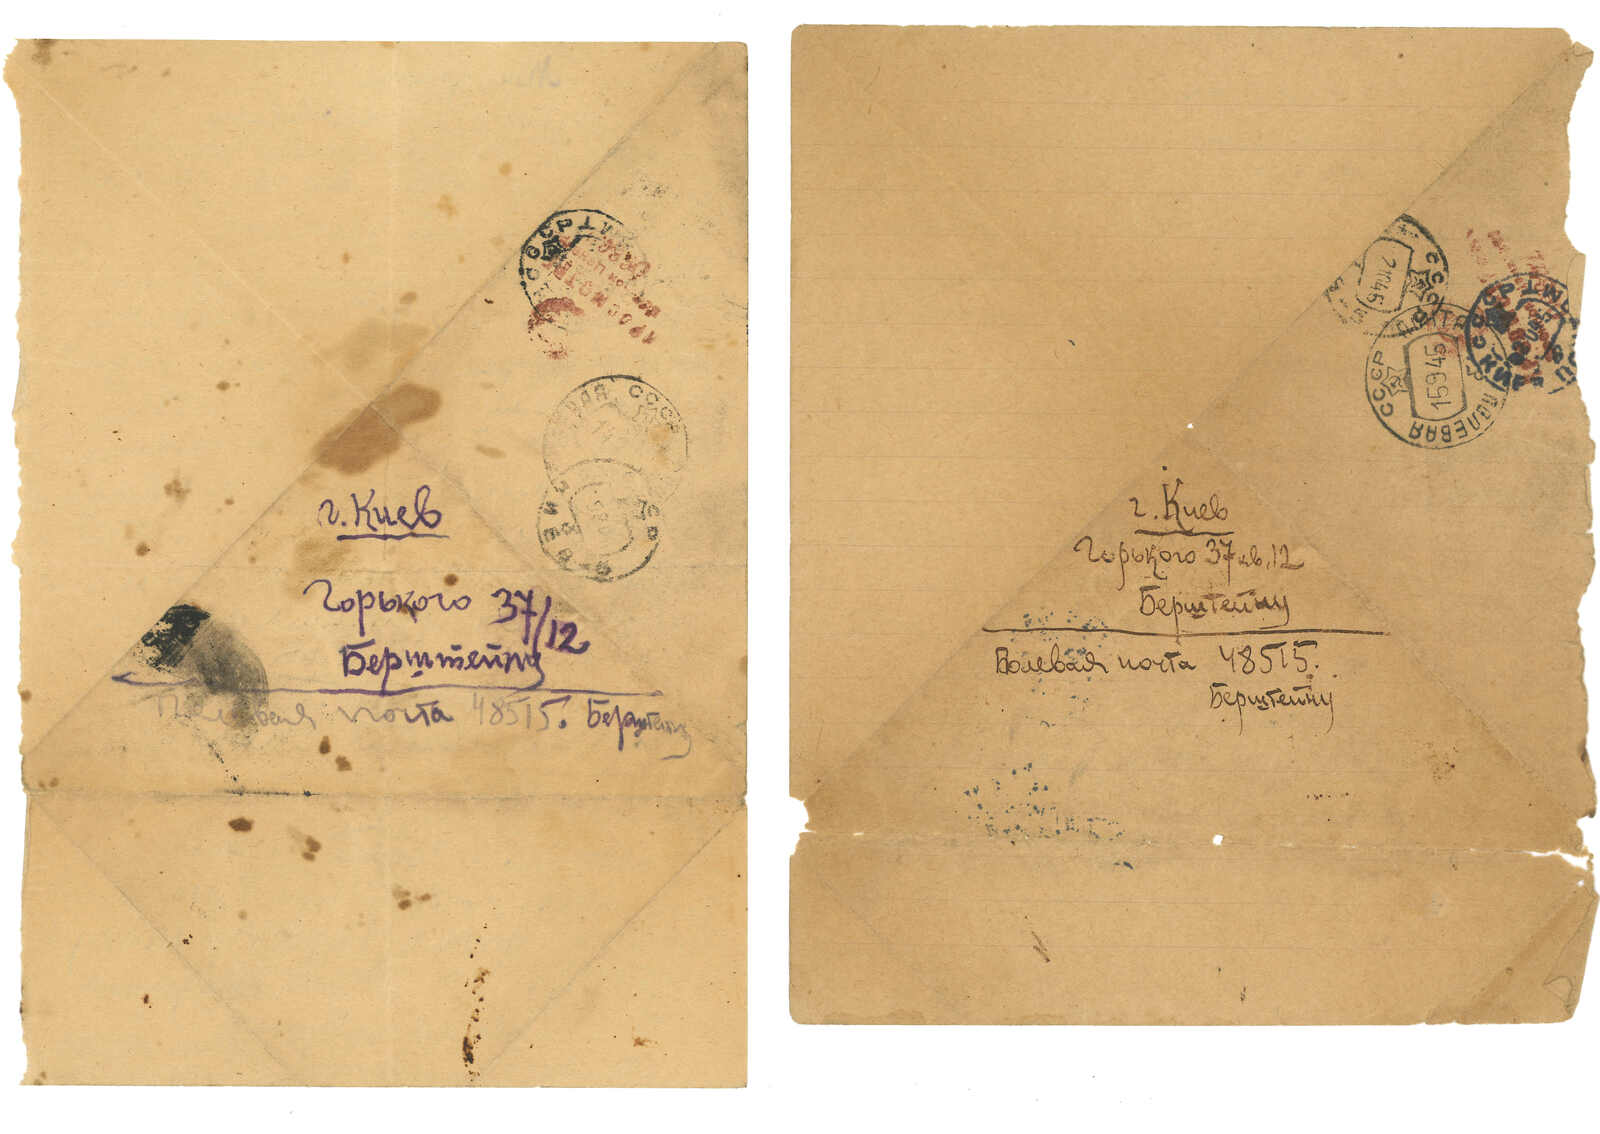 г. Киев
Горького 37/12
Берштейну
Полевая почта 48515. Берштейну
СССР
СССР
г. Киев
Горького 37 кв. 12
Берштейну
Полевая почта 48515.
Берштейну
СССР
2 10 45
СССР ПОЛЕВАЯ ПОЧТА
15 9 45
СССР